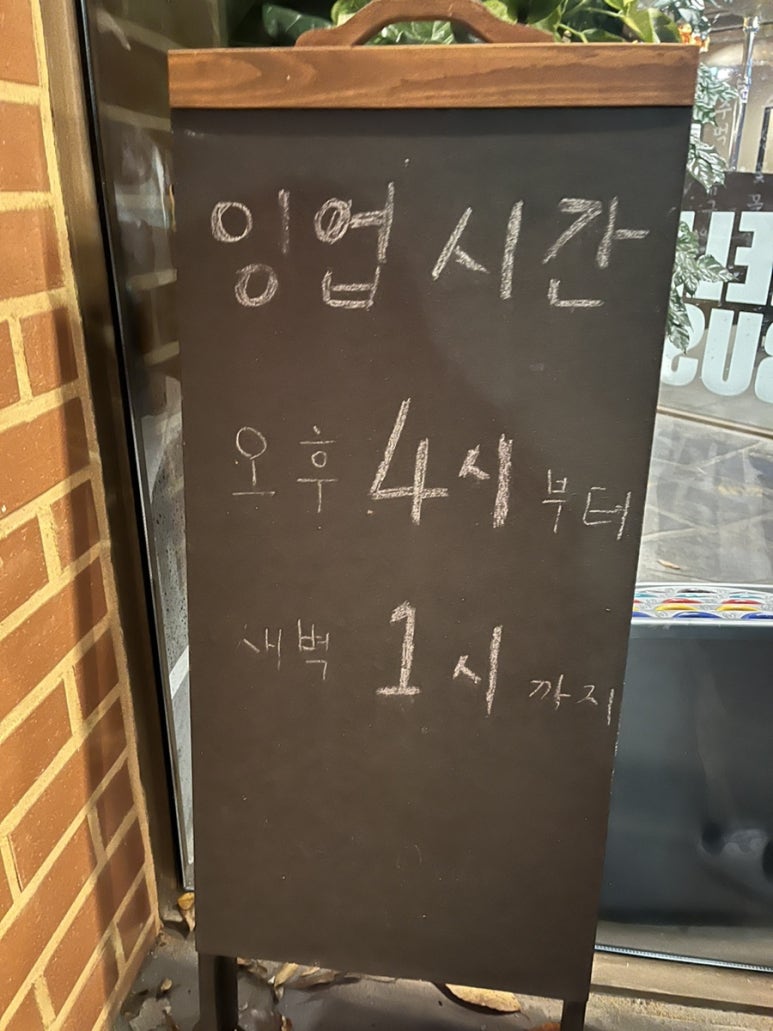 잉업 시간
오후 4시 부터
새벽 1시 까지